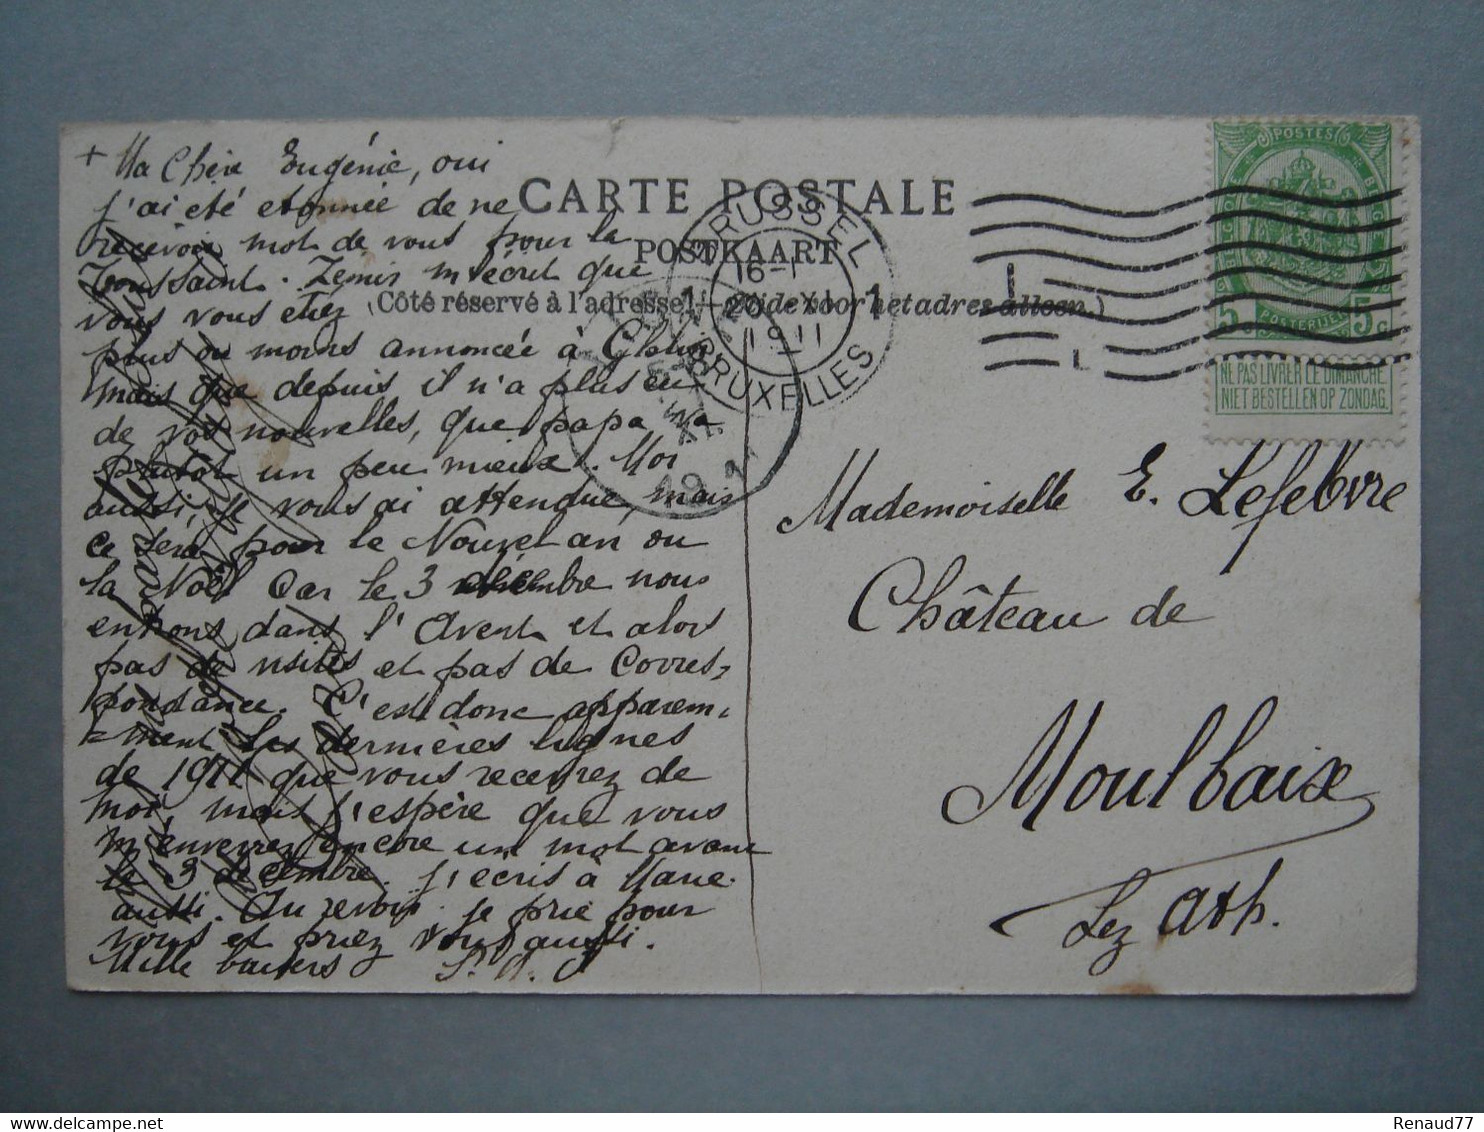 + Ma Chère Eugénie, oui
j'ai été etonnée de ne
recevoir mot de vous pour la
Toussaint. Zemir m'écrit que
vous vous etiez
plus ou moins annoncée à Ghlin
mais que depuis il n'a plus eu
de vos nouvelles, que papa va
plutôt un peu mieux. Moi
aussi, je vous ai attendue, mais
ce sera pour le Nouvel an ou
la Noël Car le 3 décembre nous
entrons dans l'Avent et alors
pas de visites et pas de Corres-
pondance. C'est donc apparem-
ment les dernières lignes
de 1911 que vous recevrez de
moi, mais j'espère que vous
m'enverrez encore un mot avant
le 3 décembre. j'ecris à Marie
aussi. Au revoir. je prie pour
vous et priez vous aussi.
Mille baisers
CARTE POSTALE
POSTKAART
(Côté réservé à l'adresse. — Zijde voor het adres alleen.)
BRUSSEL
1 16-1 1
20 XI
1911
BRUXELLES
19 11
POSTES
BELGIQUE
5 c POSTERIJEN 5 c
NE PAS LIVRER LE DIMANCHE
NIET BESTELLEN OP ZONDAG
Mademoiselle E. Lefebvre
Château de
Moulbaix
Lez Ath.
Renaud77